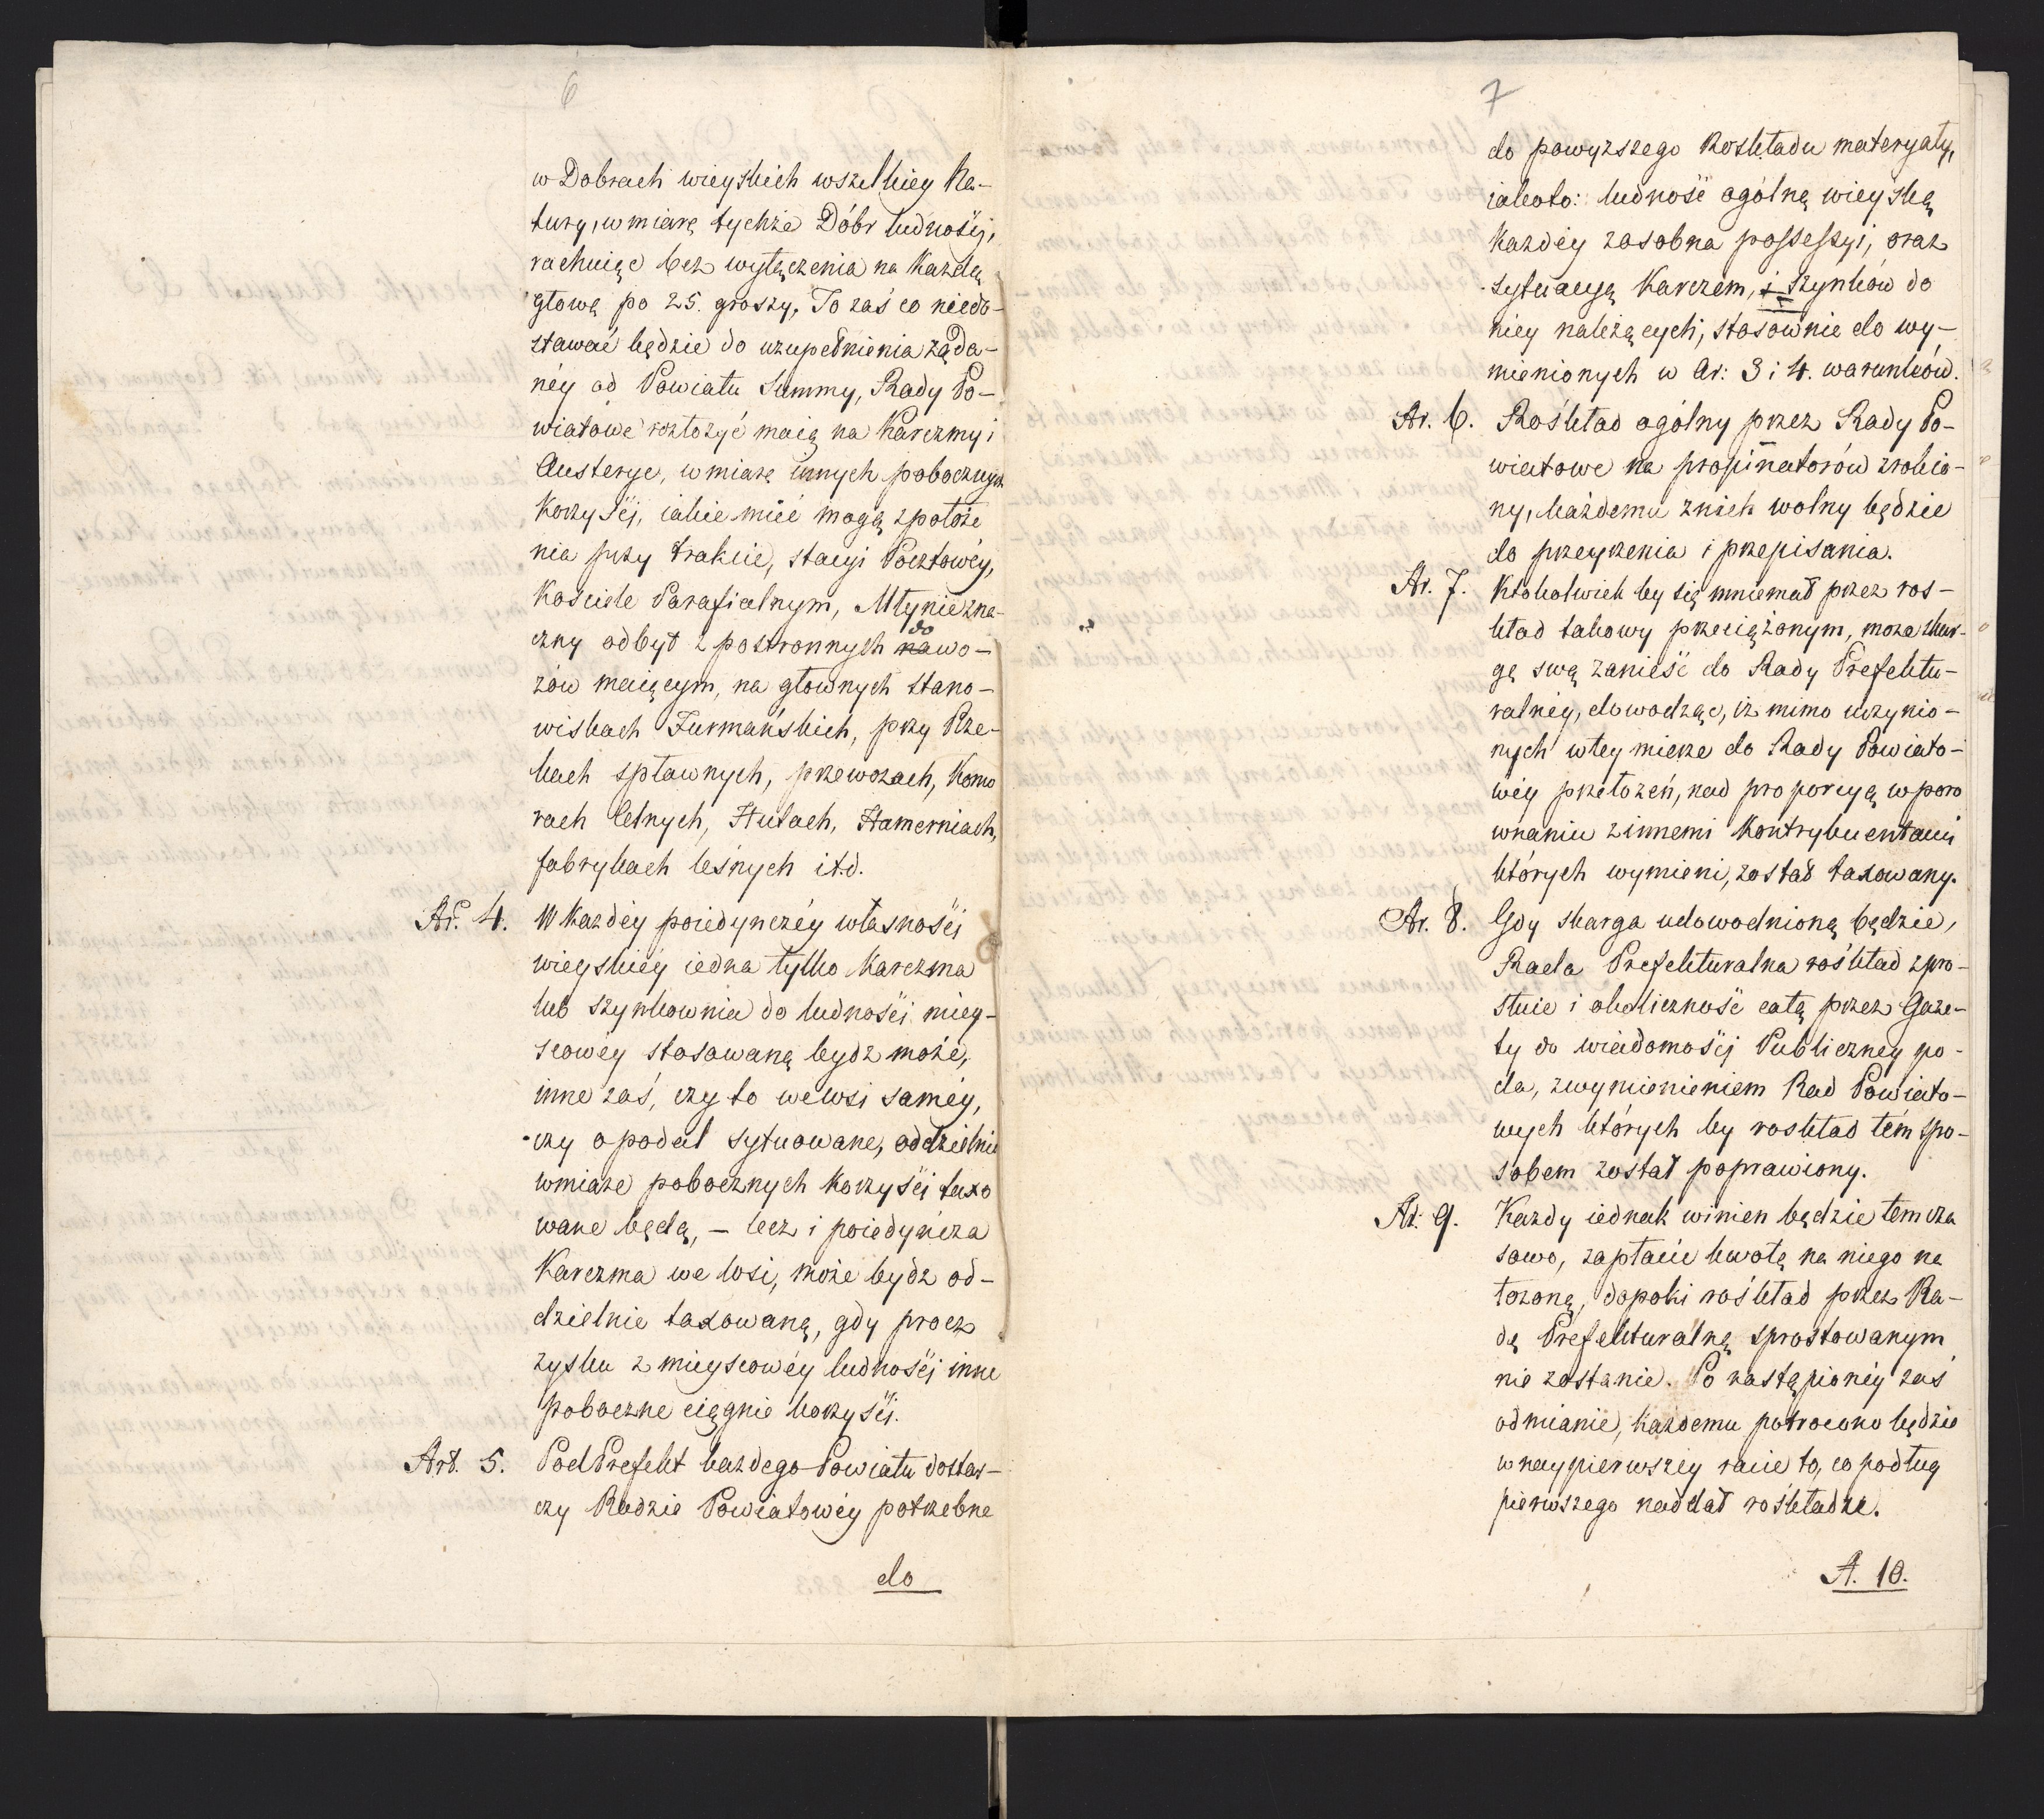 6
w Dobrach wieyskich wszelkiey Na-
tury, w miarę tychże Dóbr ludnośçi,
rachuiąc bez wyłączenia na każdą
głowę po 25. groszy. To zaś co niedo-
stawać będzie do uzupełnienia żąda-
néy od Powiatu Summy, Rady Po-
wiatowe rozłożyć maią na Karczmy i
Austerye, w miarę innych pobocznych
korzyśçi, iakie mieć mogą z położe
nia przy trakcie, stacyi Pocztowéy,
Kościele Parafialnym, Młynie zna-
czny odbyt z postronnych na do wo-
zów maiącym, na głownych stano-
wiskach Furmańskich, przy Rze-
kach spławnych, przewozach, Komo
rach Celnych, Hutach, Hamerniach,
fabrykach leśnych it.d.
Ar. 4. W każdéy poiedynczéy własnośçi
wieyskiéy iedna tylko Karczma
lub szynkownia do ludnośçi miey-
scowéy stosowaną bydz może,
inne zaś, czy to we wsi saméy,
czy opodal sytuowane, oddzielnie
w miarę pobocznych korzyśçi taxo
wane będą, – lecz i poiedyńcza
Karczma we wsi, może bydz od-
dzielnie taxowaną, gdy procz
zysku z mieyscowéy ludnośçi inne
poboczne ciągnie korzyśçi.
Art. 5. PodPrefekt każdego Powiatu dostar-
czy Radzie Powiatowéy potrzebne
do
7
do powyższego Rozkładu materyały,
iakoto: ludność ogólną wieyską
każdéy zosobna possessyi, oraz
sytuacyą Karczem, i Szynków do
niey należących, stosownie do wy-
mienionych w Ar: 3 i 4. warunków.
Ar. 6. Roskład ogólny przez Rady Po-
wiatowe na propinatorów zrobio-
ny, każdemu znich wolny będzie
do przeyrzenia i przepisania.
Ar. 7. Ktokolwiek by się mniemał przez ros-
kład takowy przeciążonym, może skar-
gę swą zanieść do Rady Prefektu-
ralnéy, dowodząc, iż mimo uczynio-
nych wtey mierze do Rady Powiato-
wéy przełożeń, nad proporcyą w poro
wnaniu z innemi Kontrybuentami
których wymieni, został taxowany.
Ar. 8. Gdy skarga udowodnioną będzie,
Rada Prefekturalna roskład spro-
stuie i okoliczność całą przez Gaze-
ty do wiadomośçi Publiczney po-
da, zwymienieniem Rad Powiato-
wych których by roskład tém spo-
sobem został poprawiony.
Ar. 9. Każdy iednak winien będzie temcza
sowo, zapłacić kwotę na niego na
łożoną, dopoki roskład przez Ra-
dę Prefekturalną sprostowanym
nie zostanie. Po nastąpionéy zaś
odmianie, każdemu potrocono będzie
w naypierwszéy racie to, co podług
pierwszego naddał roskładze.
A. 10.